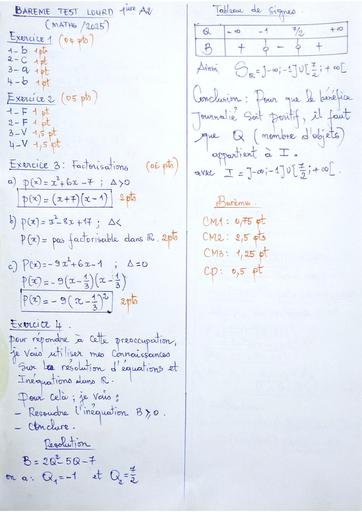 BAREME TEST LOURD 1ière A2
(MATHS / 2025)
Exercice 1 (04 pts)
1 - b 1 pt
2 - C 1 pt
3 - a 1 pt
4 - b 1 pt
Exercice 2 (05 pts)
1 - F 1 pt
2 - F 1 pt
3 - V 1,5 pt
4 - V 1,5 pt
Exercice 3 : Factorisations (06 pts)
a) P(x) = x²+6x-7 ; Δ>0
P(x) = (x+7)(x-1) 2pts
b) P(x) = x²-8x+17 ; Δ<
P(x) = pas factorisable dans ℝ. 2pts
c) P(x) = -9x²+6x-1 ; Δ=0
P(x) = -9(x-1/3)(x-1/3)
P(x) = -9(x-1/3)² 2pts
Exercice 4.
pour répondre à cette preoccupation,
je vais utiliser mes connaissances
sur la résolution d'équations et
Inéquations dans ℝ.
Pour cela ; je vais :
- Resoudre l'inéquation B ⩾ 0.
- Conclure.
Resolution
B = 2Q²-5Q-7
on a : Q₁=-1 et Q₂=7/2
Tableau de signes.
Q -∞ -1 7/2 +∞
B + 0 - 0 +
Ainsi Sℝ=]-∞;-1]∪[7/2;+∞[
Conclusion : Pour que le bénéfice
journalié soit positif, il faut
que Q (nombre d'objets)
appartient à I.
avec I=]-∞;-1]∪[7/2;+∞[.
Barème
CM1 : 0,75 pt
CM2 : 2,5 pts
CM3 : 1,25 pt
CP : 0,5 pt